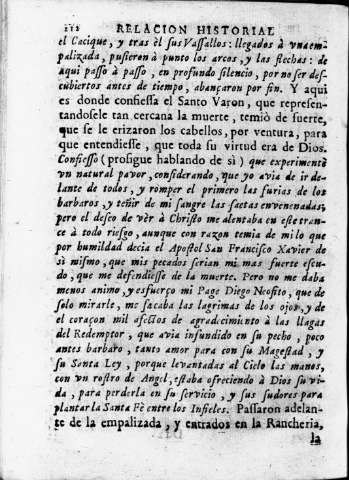 112 RELACION HISTORIAL
el Cacique, y tras èl sus Vassallos: llegados à vna em-
palizada, pusieron à punto los arcos, y las flechas: de
aqui passo à passo, en profundo silencio, por no ser des-
cubiertos antes de tiempo, abançaron por fin. Y aqui
es donde confiessa el Santo Varon, que represen-
tandosele tan cercana la muerte, temiò de suerte,
que se le erizaron los cabellos, por ventura, para
que entendiesse, que toda su virtud era de Dios.
Confiesso (prosigue hablando de sì) que experimentè
vn natural pavor, considerando, que yo avia de ir de-
lante de todos, y romper el primero las furias de los
barbaros, y teñir de mi sangre las saetas envenenadas;
pero el deseo de vèr à Christo me alentaba en este tran-
ce à todo riesgo, aunque con razon temia de mi lo que
por humildad decia el Apostol San Francisco Xavier de
sì mismo, que mis pecados serian mi mas fuerte escu-
do, que me defendiesse de la muerte. Pero no me daba
menos animo, y esfuerço mi Page Diego Neofito, que de
solo mirarle, me sacaba las lagrimas de los ojos, y de
el coraçon mil afectos de agradecimiento à las llagas
del Redemptor, que avia infundido en su pecho, poco
antes barbaro, tanto amor para con su Magestad, y
su Santa Ley, porque levantadas al Cielo las manos,
con vn rostro de Angel, estaba ofreciendo à Dios su vi-
da, para perderla en su servicio, y sus sudores para
plantar la Santa Fè entre los Infieles. Passaron adelan-
te de la empalizada, y entrados en la Rancheria,
la